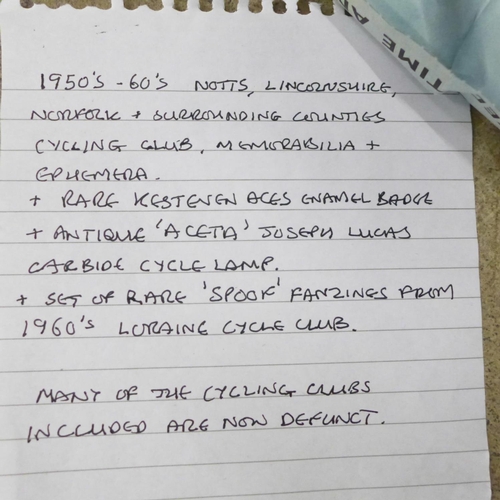 1950's - 60's NOTTS, LINCOLNSHIRE,
NORFOLK + SURROUNDING COUNTIES
CYCLING CLUB, MEMORABILIA +
EPHEMERA.
+ RARE KESTEVEN ACES ENAMEL BADGE
+ ANTIQUE 'ACETA' JOSEPH LUCAS
CARBIDE CYCLE LAMP.
+ SET OF RARE 'SPOOK' FANZINES FROM
1960's LORAINE CYCLE CLUB.
MANY OF THE CYCLING CLUBS
INCLUDED ARE NOW DEFUNCT.
TIME A